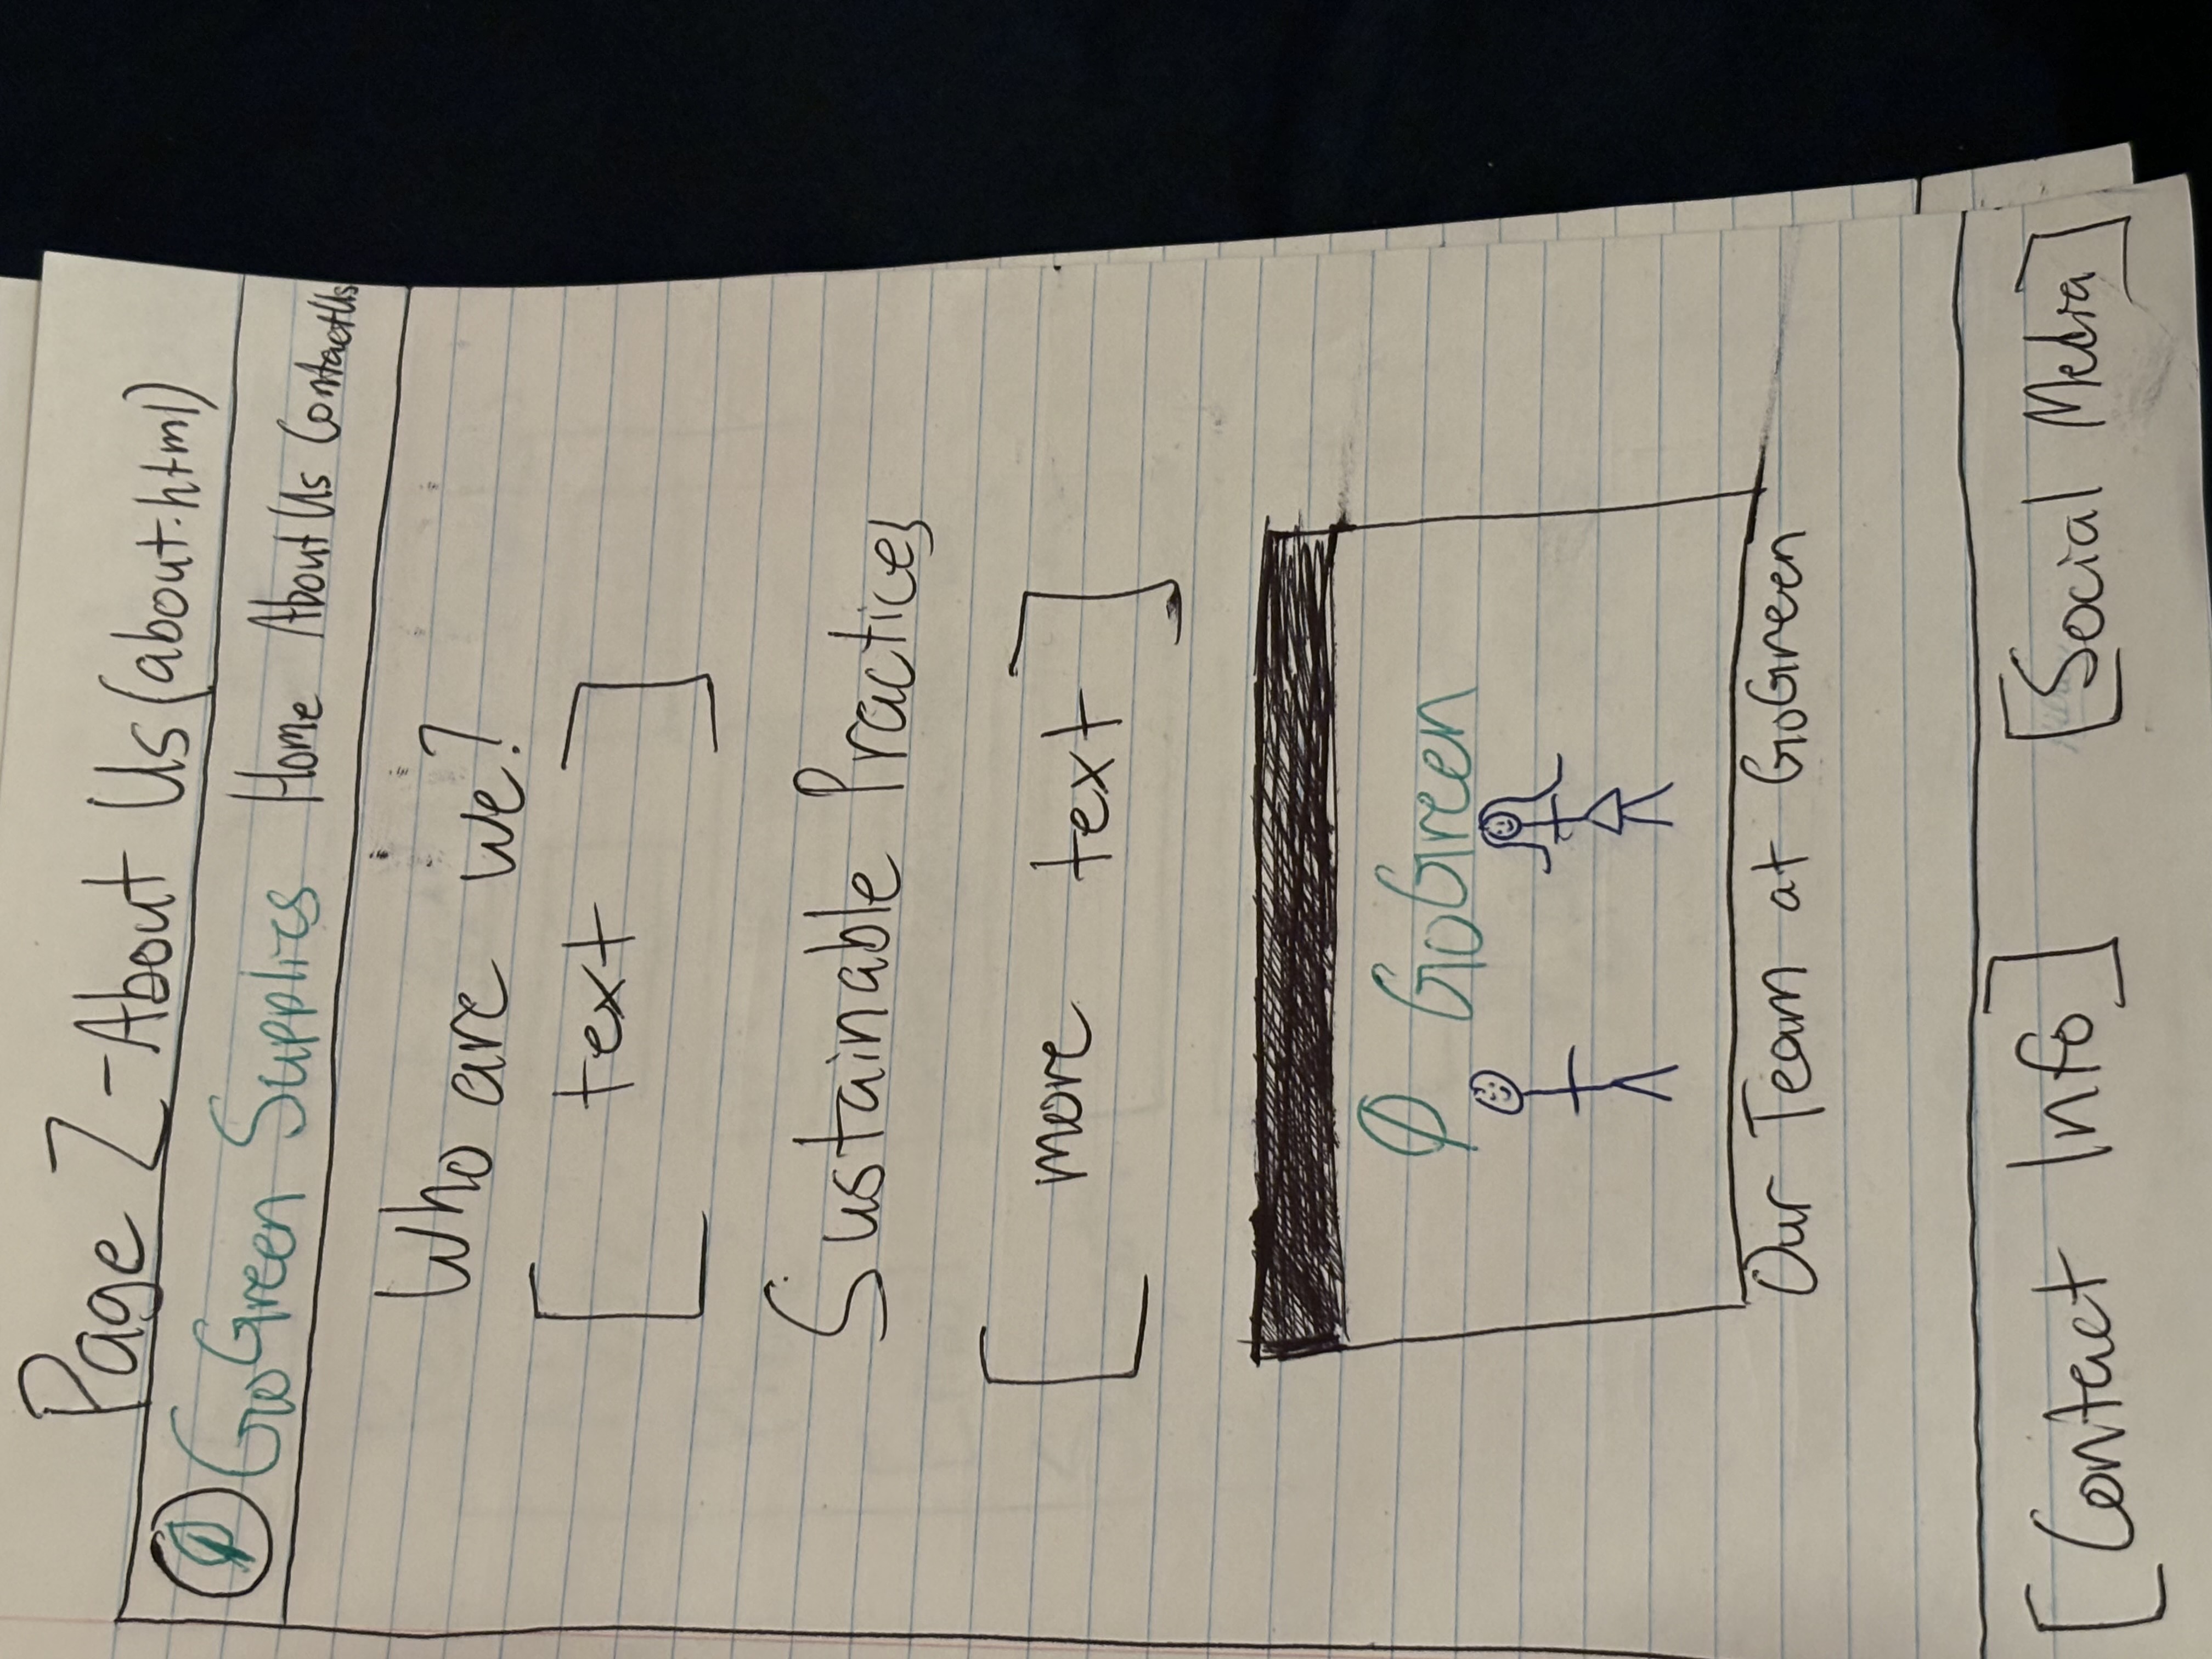 Page 2 - About Us (about.html)
GoGreen Supplies Home About Us Contact Us
Who are we?
[ text ]
Sustainable Practices
[ more text ]
GoGreen
Our Team at GoGreen
[Contact Info] [Social Media]